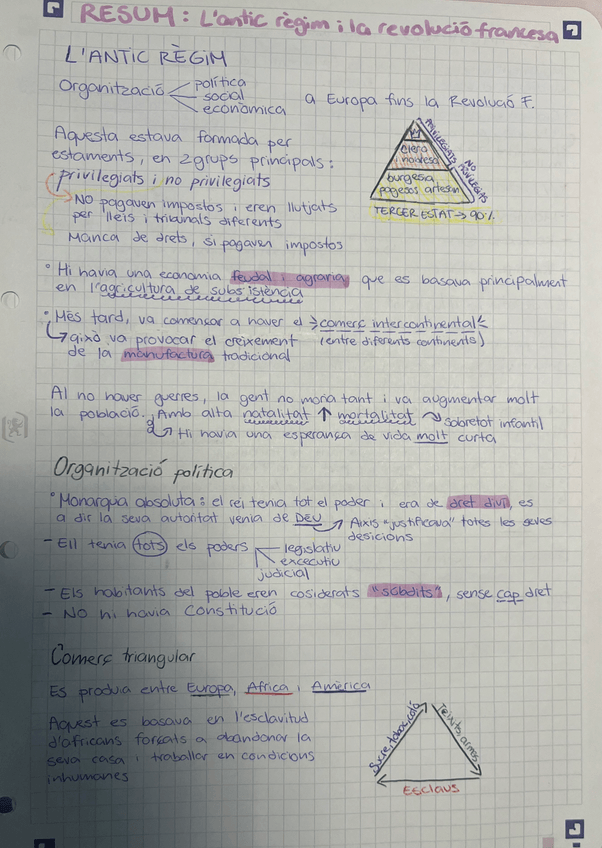 RESUM: L'antic règim i la revolució francesa
L'ANTIC RÈGIM
Organització
política
social
econòmica
a Europa fins la Revolució F.
Aquesta estava formada per
estaments, en 2 grups principals:
privilegiats i no privilegiats
NO pagaven impostos i eren llutjats
per lleis i tribunals diferents
Manca de drets, si pagaven impostos
clero
noblesa
burgesia
pagesos artesans
PRIVILEGIATS
NO PRIVILEGIATS
TERCER ESTAT → 90%
• Hi havia una economia feudal i agraria que es basava principalment
en l'agricultura de subsistència
• Més tard, va començar a haver el comerç intercontinental
(entre diferents continents)
això va provocar el creixement
de la manufactura tradicional
Al no haver guerres, la gent no moria tant i va augmentar molt
la població. Amb alta natalitat ↑ mortalitat → sobretot infantil
Hi havia una esperança de vida molt curta
Organització política
• Monarquia absoluta: el rei tenia tot el poder i era de dret diví, es
a dir la seva autoritat venia de DEU
Aixis "justificava" totes les seves
desicions
- Ell tenia tots els poders
legislatiu
excecutiu
judicial
- Els habitants del poble eren cosiderats "súbdits", sense cap dret
- NO hi havia Constitució
Comerç triangular
Es produia entre Europa, Africa i Amèrica
Aquest es basava en l'esclavitud
d'africans forçats a abandonar la
seva casa i traballar en condicions
inhumanes
Sucre, tabac, cotó
Teixits, armes
ESCLAUS